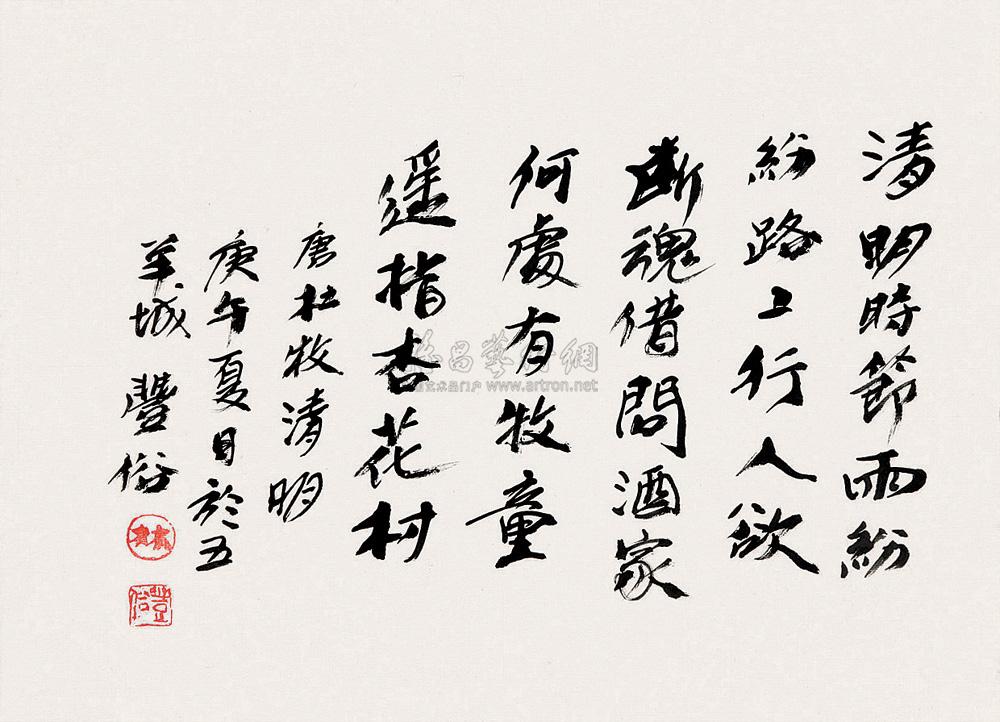 清明時節雨紛
紛路上行人欲
斷魂借問酒家
何處有牧童
遥指杏花村
唐杜牧清明
庚午夏日於五
羊城 豐俗
豐俗
雅昌藝術網
www.artron.net